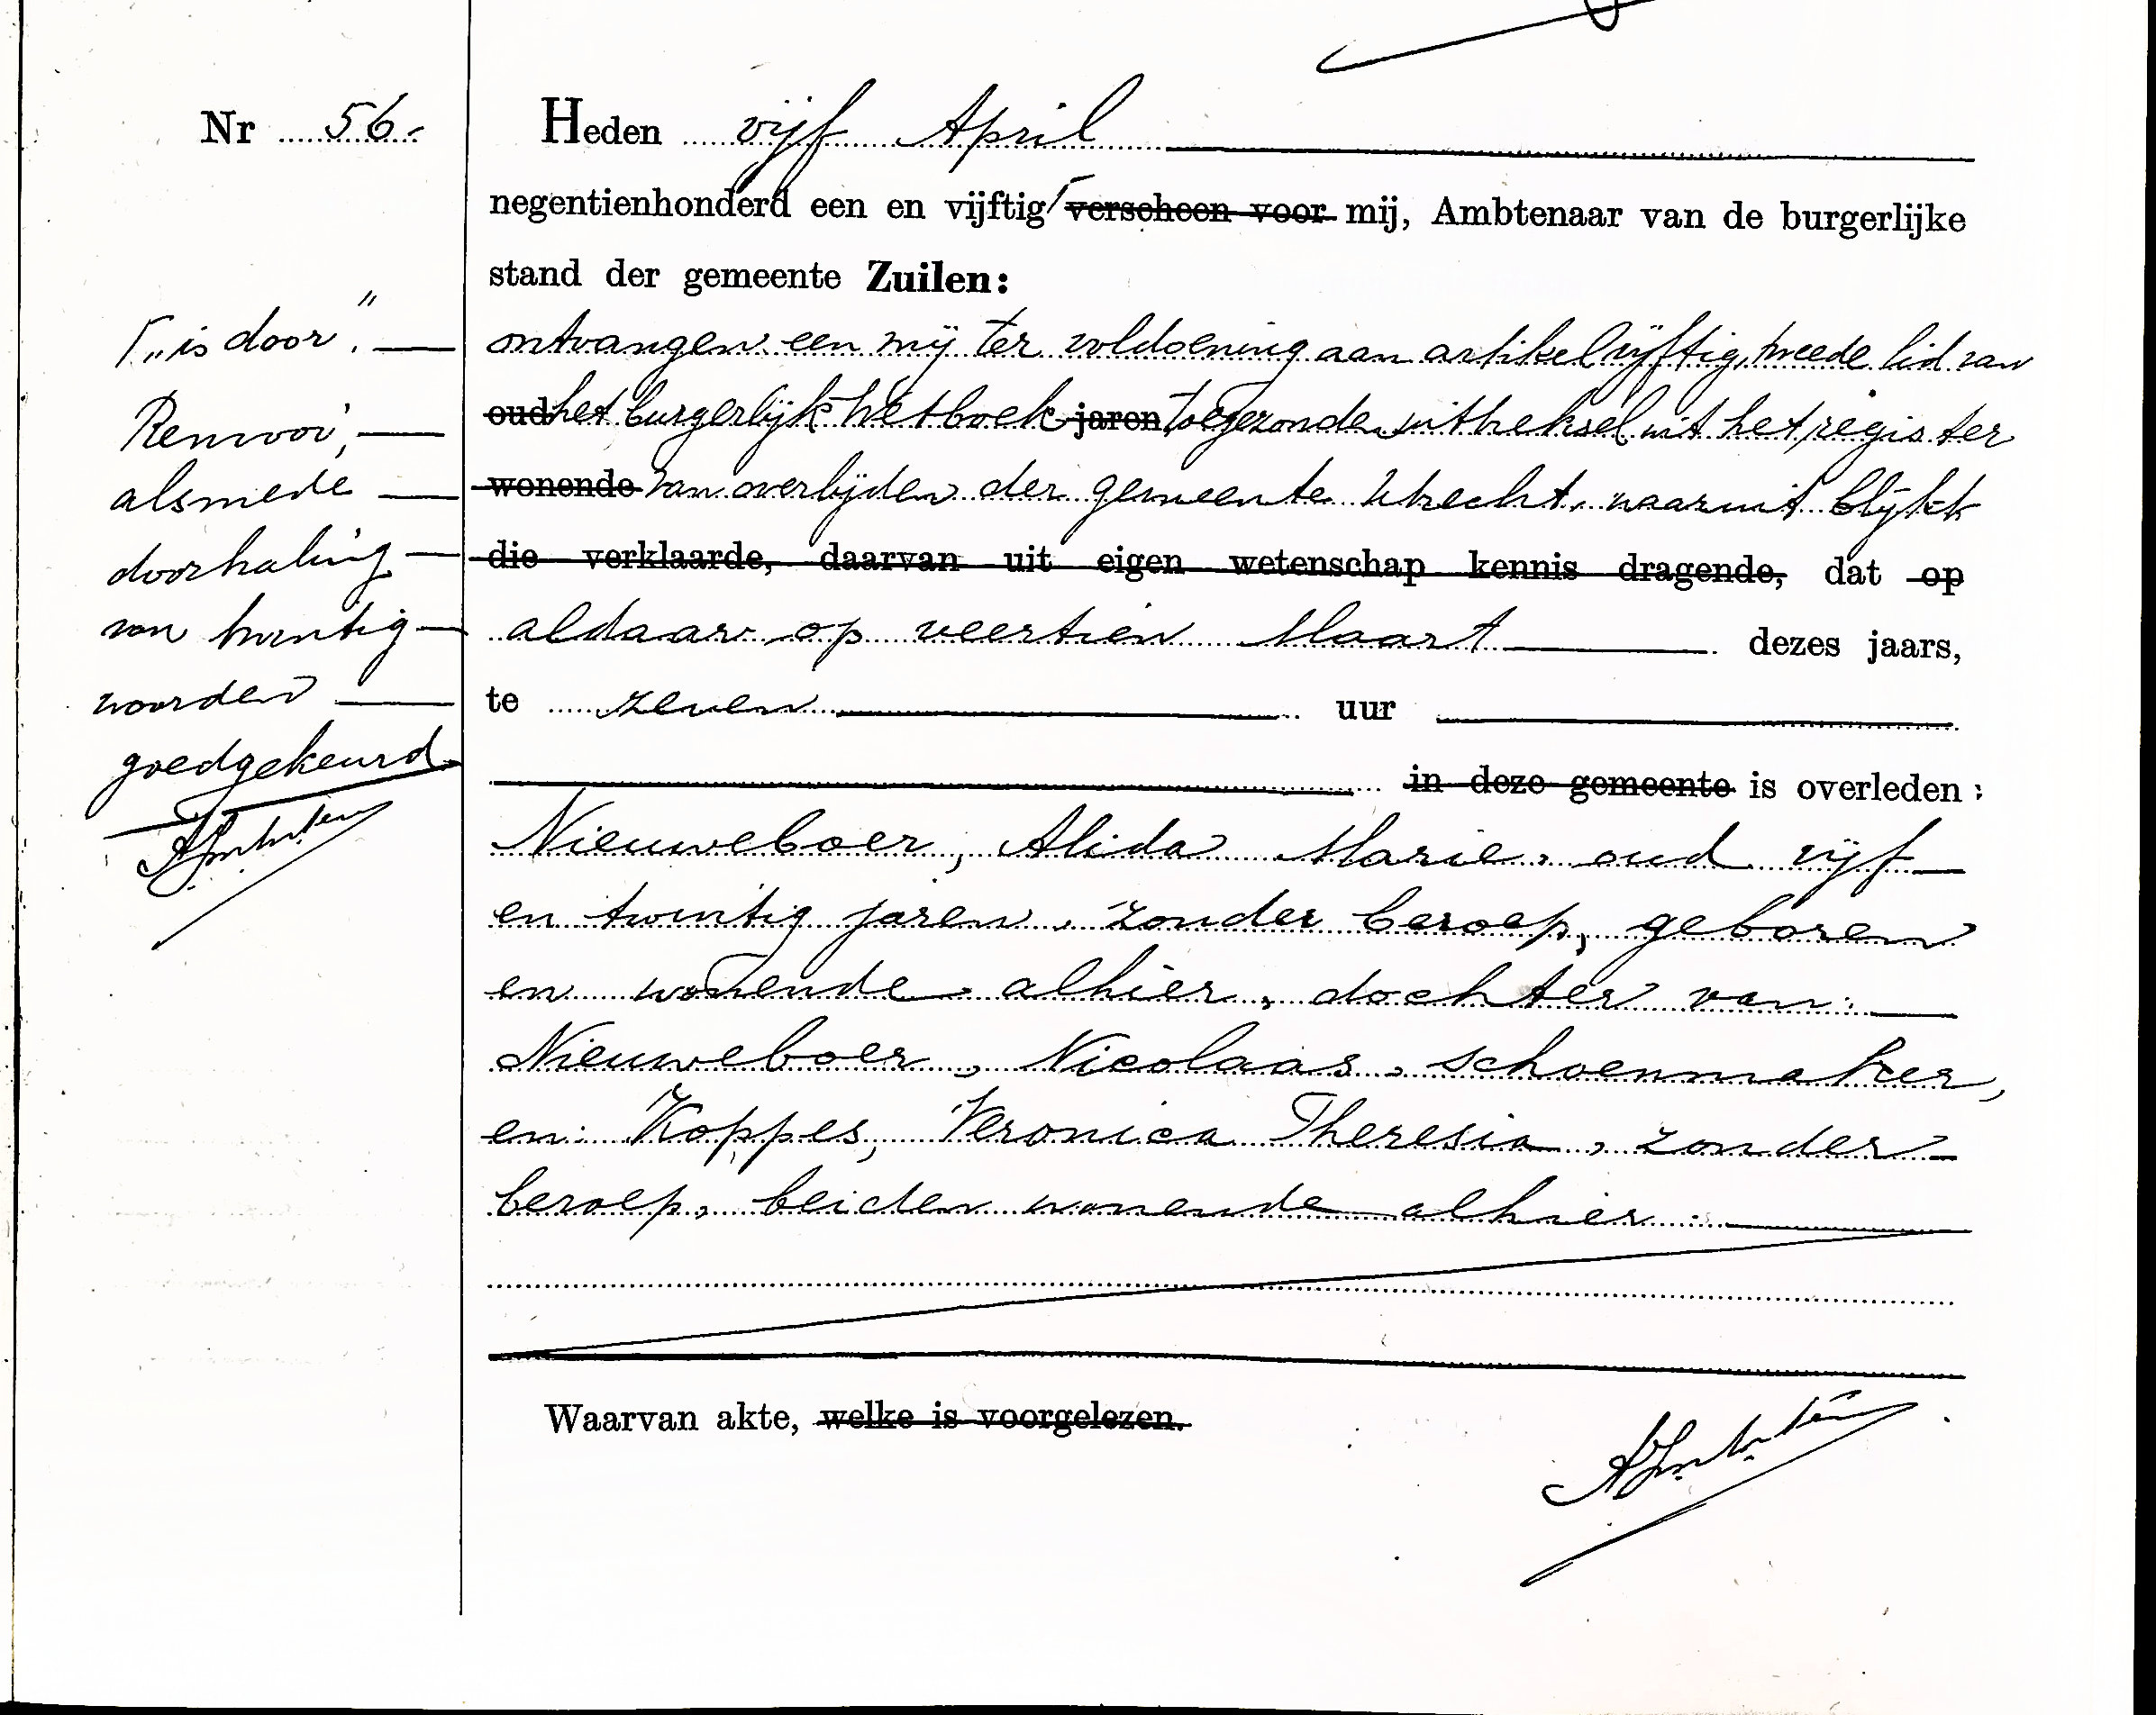 Nr 56.
Heden vijf April
negentienhonderd een en vijftig ⌈ ~~verscheen voor~~ mij, Ambtenaar van de burgerlijke
stand der gemeente Zuilen:
ontvangen een mij ter voldoening aan artikel vijftig, tweede lid van
~~oud~~ het burgerlijk Wetboek ~~jaren~~ toegezonden uittreksel uit het register
~~wonende~~ van overlijden der gemeente Utrecht, waaruit blijkt
~~die verklaarde, daarvan uit eigen wetenschap kennis dragende,~~ dat ~~op~~
aldaar op veertien Maart dezes jaars,
te zeven uur
~~in deze gemeente~~ is overleden:
Nieuweboer, Alida Marie, oud vijf
en twintig jaren, zonder beroep, geboren
en wonende alhier, dochter van:
Nieuweboer, Nicolaas, schoenmaker,
en: Koppes, Veronica Theresia, zonder
beroep, beiden wonende alhier.
Waarvan akte, ~~welke is voorgelezen.~~
⌈ „is door".
Renvooi,
alsmede
doorhaling
van twintig
woorden
goedgekeurd